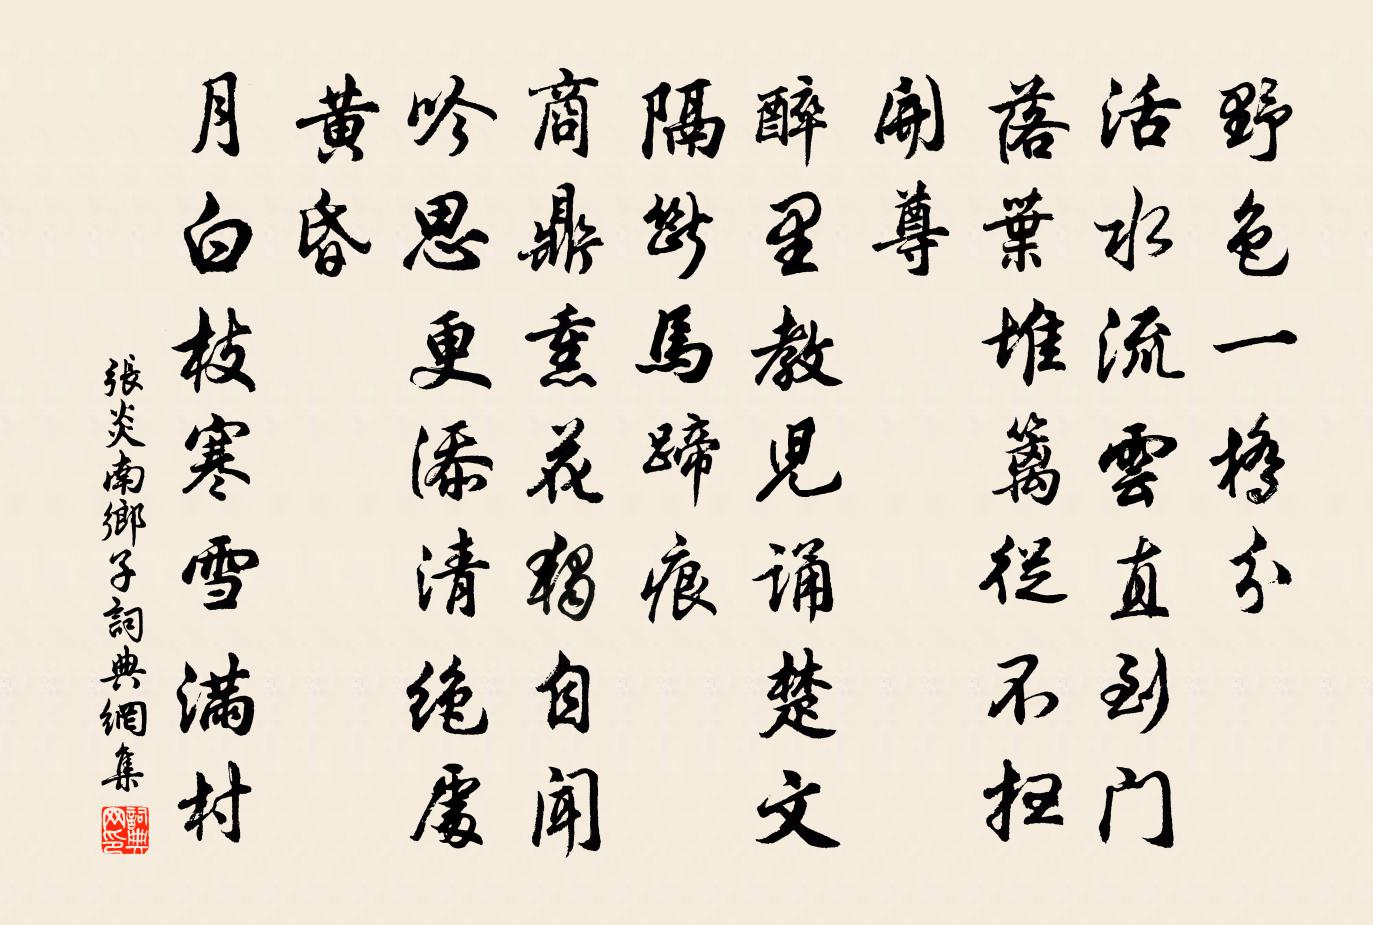 野色一橋分
活水流雲直到门
落葉堆篱從不扫
開尊
醉里教兒诵楚文
隔斷馬蹄痕
商鼎熏花独自闻
吟思更添清绝處
黄昏
月白枝寒雪满村
張炎南鄉子詞典網集
詞典网印